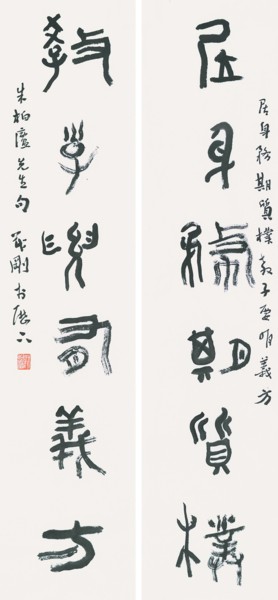 居身務期質樸教子要有義方
居身務期質樸
教子要有義方
朱柏廬先生句 剛於歷下